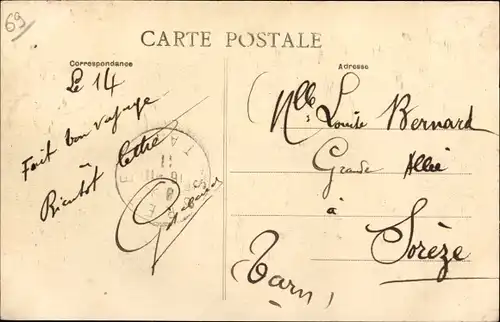 69
CARTE POSTALE
Correspondance
Adresse
Le 14
Fait bon voyage
à
Bientôt lettre
Mlle Louise Bernard
Grande Allée
à
Sorèze
(Tarn)